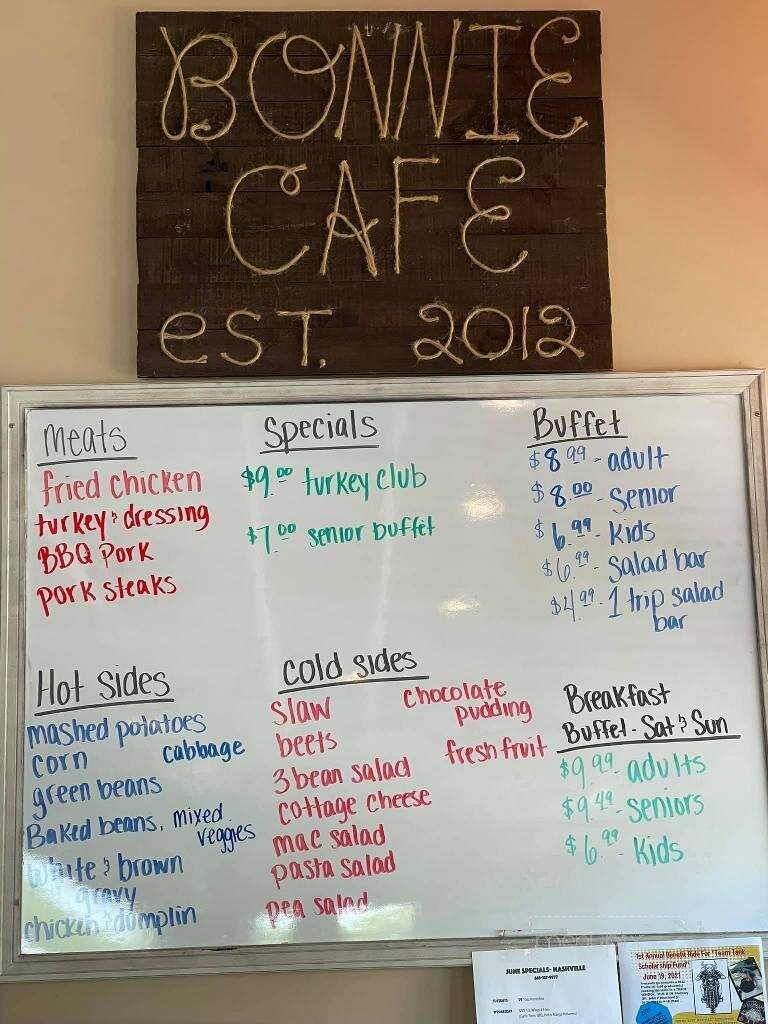 BONNIE
CAFE
EST. 2012
Meats
fried chicken
turkey & dressing
BBQ Pork
Pork steaks
Specials
$9.00 turkey club
$7.00 senior buffet
Buffet
$8.99 - adult
$8.00 - Senior
$6.99 - kids
$6.99 - Salad bar
$4.99 - 1 trip salad
bar
Hot Sides
mashed potatoes
corn cabbage
green beans
Baked beans, mixed
veggies
white & brown
gravy
chicken & dumplin
Cold sides
slaw
beets
3 bean salad
cottage cheese
mac salad
pasta salad
pea salad
chocolate
pudding
fresh fruit
Breakfast
Buffet - Sat & Sun
$9.99 - adults
$9.49 - seniors
$6.99 - kids
JUNE SPECIALS - NASHVILLE
TUESDAYS
WEDNESDAY
1st Annual Benefit Ride For "Team Tank
Scholarship Fund"
June 19, 2021